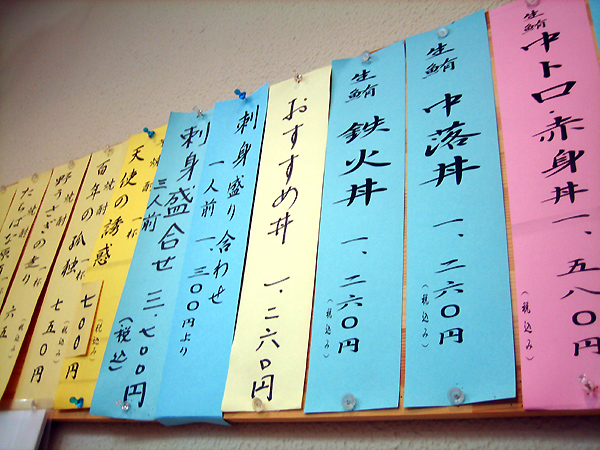 生鮪
中トロ・赤身丼 一、五八〇円
(税込み)
生鮪
中落丼 一、二六〇円
(税込み)
生鮪
鉄火丼 一、二六〇円
(税込み)
おすすめ丼 一、二六〇円
刺身盛り合わせ
一人前 一、三〇〇円より
刺身盛合せ 三、七〇〇円
三人前 (税込)
焼酎
天使の誘惑 一杯
焼酎
百年の孤独 一杯 七〇〇円
(税込み)
焼酎
野うさぎの走り 七五〇円
(税込み)
焼酎
たちばな 六五